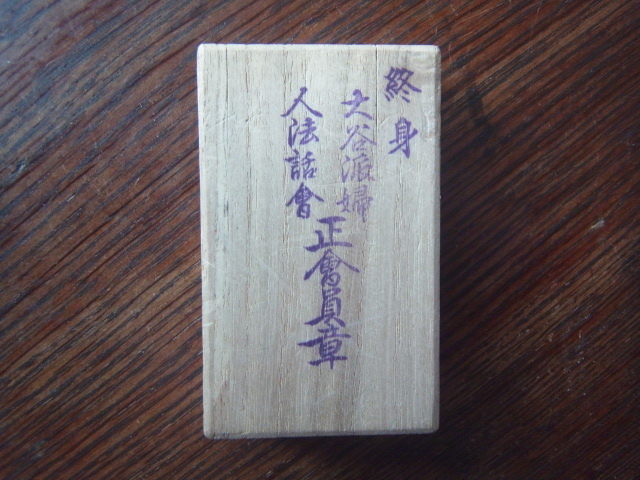 終身
大谷派婦
人法話會
正會員章